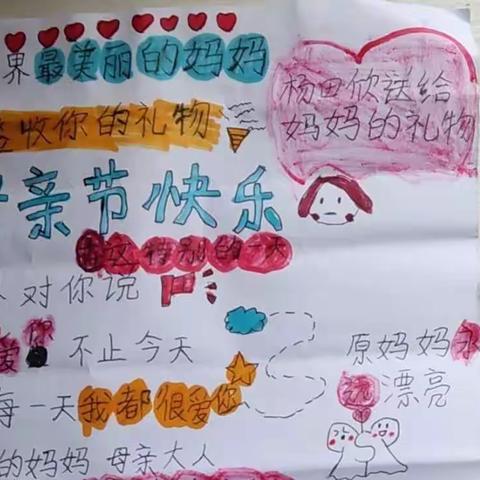 界最美丽的妈妈
杨田欣送给
妈妈的礼物
收你的礼物
亲节快乐
在这特别的一天
对你说
爱你 不止今天
原妈妈永
远漂亮
每一天我都很爱你
的妈妈 母亲大人